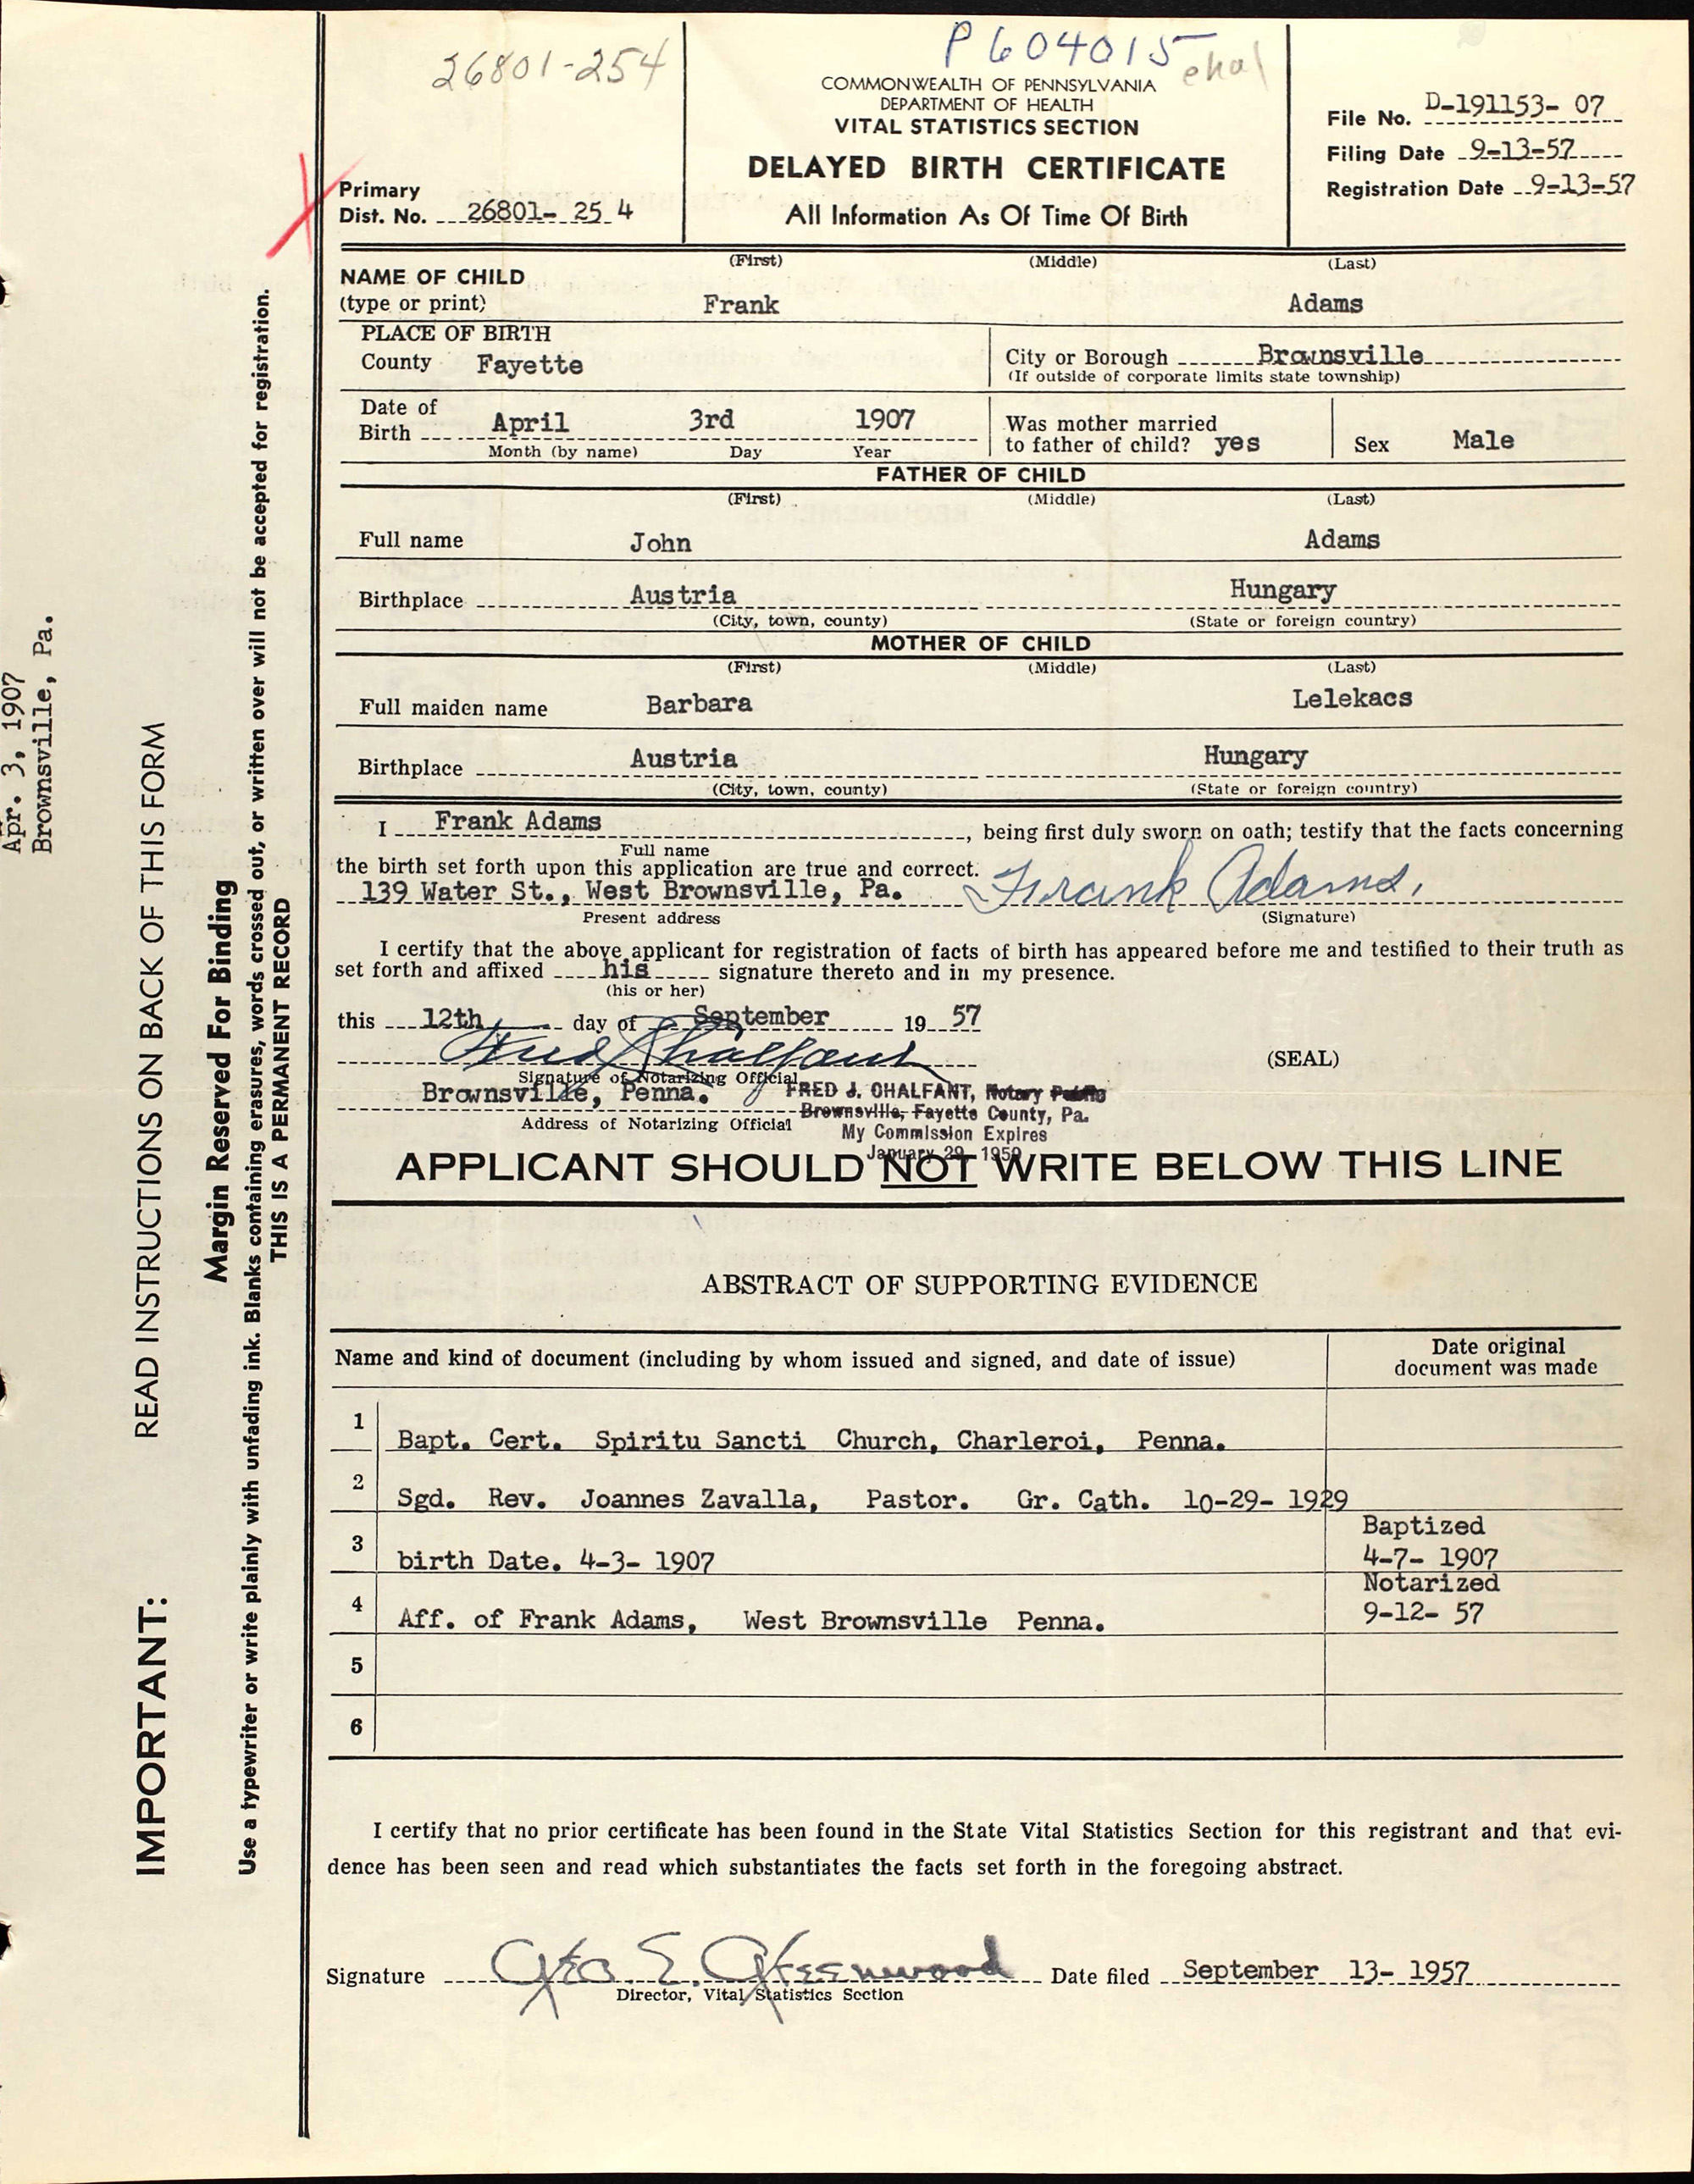 26801-254
P604015
COMMONWEALTH OF PENNSYLVANIA
DEPARTMENT OF HEALTH
VITAL STATISTICS SECTION
DELAYED BIRTH CERTIFICATE
All Information As Of Time Of Birth
Primary
Dist. No. 26801- 25 4
File No. D-191153- 07
Filing Date 9-13-57
Registration Date 9-13-57
(First) (Middle) (Last)
NAME OF CHILD
(type or print) Frank Adams
PLACE OF BIRTH
County Fayette City or Borough Brownsville
(If outside of corporate limits state township)
Date of
Birth April 3rd 1907
Month (by name) Day Year
Was mother married
to father of child? yes Sex Male
FATHER OF CHILD
(First) (Middle) (Last)
Full name John Adams
Birthplace Austria Hungary
(City, town, county) (State or foreign country)
MOTHER OF CHILD
(First) (Middle) (Last)
Full maiden name Barbara Lelekacs
Birthplace Austria Hungary
(City, town, county) (State or foreign country)
I Frank Adams, being first duly sworn on oath; testify that the facts concerning
Full name
the birth set forth upon this application are true and correct.
139 Water St., West Brownsville, Pa. Frank Adams.
Present address (Signature)
I certify that the above applicant for registration of facts of birth has appeared before me and testified to their truth as
set forth and affixed his signature thereto and in my presence.
(his or her)
this 12th day of September 19 57
Fred J Chalfant (SEAL)
Signature of Notarizing Official
Brownsville, Penna.
Address of Notarizing Official
FRED J. CHALFANT, Notary Public
Brownsville, Fayette County, Pa.
My Commission Expires
January 29, 1959
APPLICANT SHOULD NOT WRITE BELOW THIS LINE
ABSTRACT OF SUPPORTING EVIDENCE
Name and kind of document (including by whom issued and signed, and date of issue)
Date original
document was made
1 Bapt. Cert. Spiritu Sancti Church, Charleroi, Penna.
2 Sgd. Rev. Joannes Zavalla, Pastor. Gr. Cath. 10-29- 1929
Baptized
3 birth Date. 4-3- 1907 4-7- 1907
Notarized
4 Aff. of Frank Adams, West Brownsville Penna. 9-12- 57
5
6
I certify that no prior certificate has been found in the State Vital Statistics Section for this registrant and that evi-
dence has been seen and read which substantiates the facts set forth in the foregoing abstract.
Signature Geo. E. Greenwood Date filed September 13- 1957
Director, Vital Statistics Section
Apr. 3, 1907
Brownsville, Pa.
IMPORTANT: READ INSTRUCTIONS ON BACK OF THIS FORM
Margin Reserved For Binding
Use a typewriter or write plainly with unfading ink. Blanks containing erasures, words crossed out, or written over will not be accepted for registration.
THIS IS A PERMANENT RECORD